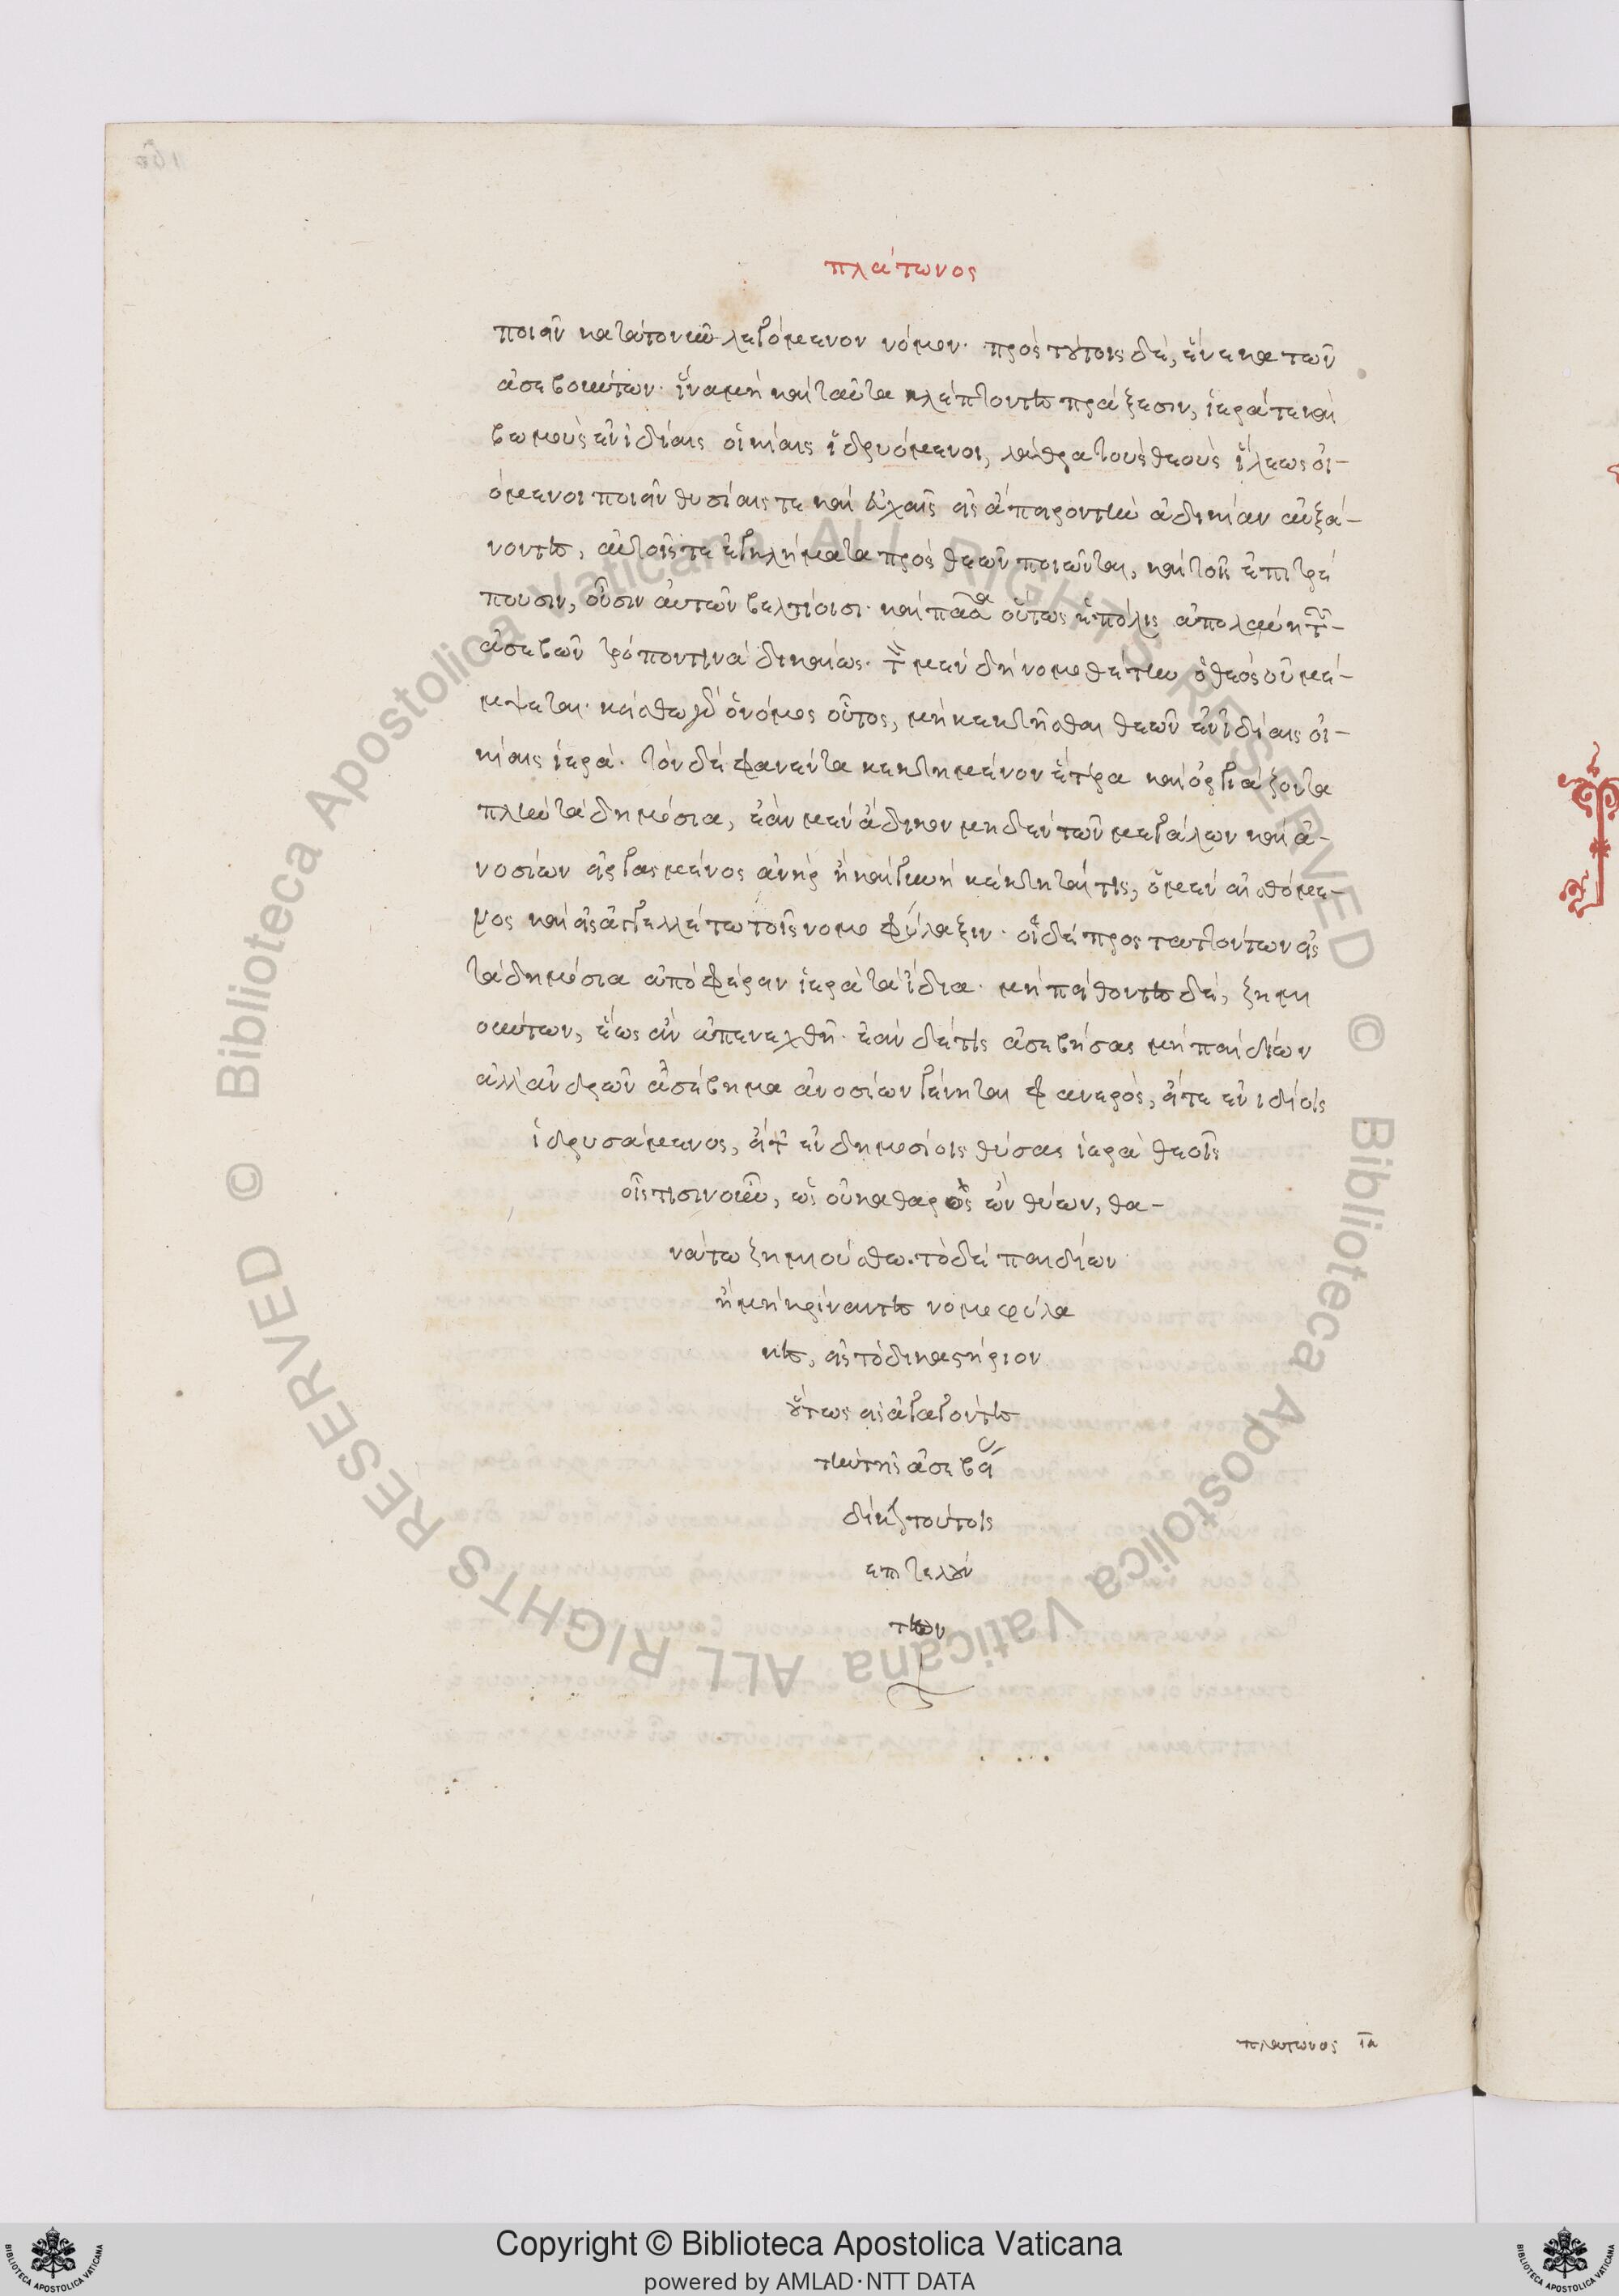 πλάτωνος
ποιεῖν κατὰ τὸν νῦν λεγόμενον νόμον· πρὸς τούτοις δὲ, ἕνεκα τῶν
ἀσεβούντων· ἵνα μὴ καὶ ταῦτα κλέπτοντες πράξεσιν, ἱερά τε καὶ
βωμοὺς ἐν ἰδίαις οἰκίαις ἱδρυόμενοι, λάθρα τοὺς θεοὺς ἵλεως οἰ-
όμενοι ποιεῖν θυσίαις τε καὶ εὐχαῖς εἰς ἄπειρον τὴν ἀδικίαν αὐξά-
νοντες, αὑτοῖς τε ἐγκλήματα πρὸς θεῶν ποιῶνται, καὶ τοῖς ἐπιτρέ
πουσιν, οὖσιν αὐτῶν βελτίοσι· καὶ πᾶσα οὕτως ἡ πόλις ἀπολαύη τῶν
ἀσεβῶν τρόπον τινὰ δικαίως· τὸν μὲν δὴ νομοθέτην ὁ θεὸς οὐ μέ-
μψεται· κείσθω γὰρ ὁ νόμος οὗτος, μὴ κεκτῆσθαι θεῶν ἐν ἰδίαις οἰ-
κίαις ἱερά· τὸν δὲ φανέντα κεκτημένον ἕτερα καὶ ὀργιάζοντα
πλὴν τὰ δημόσια, ἐὰν μὲν ἄδικον μηδὲν τῶν μεγάλων καὶ ἀ-
νοσίων εἰργασμένος ἀνὴρ ἢ καὶ γυνὴ κέκτηταί τις, ὁ μὲν αἰσθόμε-
νος καὶ εἰσαγγελλέτω τοῖς νομοφύλαξιν· οἱ δὲ προσταττόντων εἰς
τὰ δημόσια ἀποφέρειν ἱερὰ τὰ ἴδια· μὴ πείθοντες δὲ, ζημι
ούντων, ἕως ἂν ἀπενεχθῆ· ἐὰν δέ τις ἀσεβήσας μὴ παιδίων
ἀλλ' ἀνδρῶν ἀσέβημα ἀνοσίων γένηται φανερὸς, εἴτε ἐν ἰδίοις
ἱδρυσάμενος, εἴτ' ἐν δημοσίοις θύσας ἱερὰ θεοῖς
οἷς τισιν οὖν, ὡς οὐ καθαρὸς ὢν θύων, θα-
νάτω ζημιούσθω· τὸ δὲ παιδίων
ἢ μὴ κρίναντες νομοφύλα
κες, εἰς τὸ δικαστήριον
οὕτως εἰσαγαγόντες
τὴν τῆς ἀσεβείας
δίκην τούτοις
ἐπιτελούν
των
πλάτωνος ια